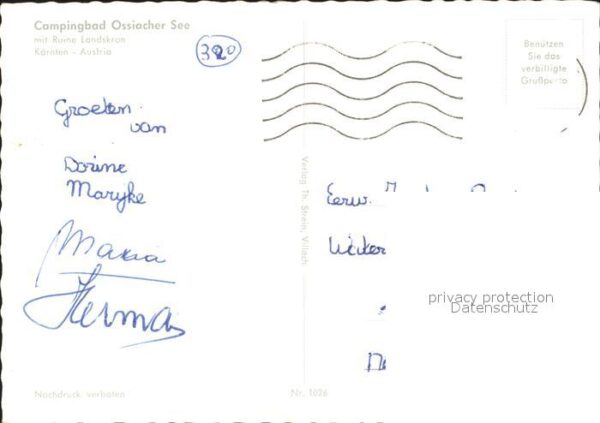 Campingbad Ossiacher See
mit Ruine Landskron
Kärnten - Austria
320
Benützen
Sie das
verbilligte
Grußporto
Groeten
van
Dorine
Marijke
Maria
Herman
Verlag Th. Strein, Villach
Eerw.
privacy protection
Datenschutz
Nachdruck verboten
Nr. 1026